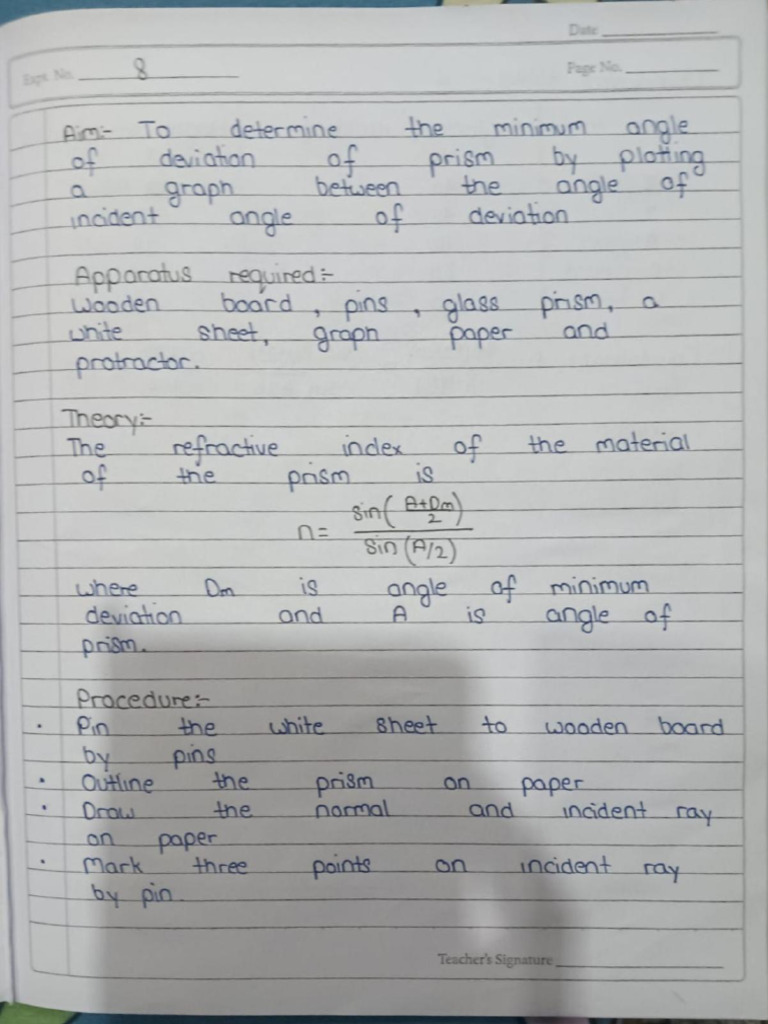 Date
Expt. No. 8
Page No.
Aim:- To determine the minimum angle
of deviation of prism by plotting
a graph between the angle of
incident angle of deviation
Apparatus required:-
Wooden board, pins, glass prism, a
white sheet, graph paper and
protractor.
Theory:-
The refractive index of the material
of the prism is
n = sin((A+Dm)/2) / sin(A/2)
where Dm is angle of minimum
deviation and A is angle of
prism.
Procedure:-
• Pin the white sheet to wooden board
by pins
• Outline the prism on paper
• Draw the normal and incident ray
on paper
• Mark three points on incident ray
by pin.
Teacher's Signature